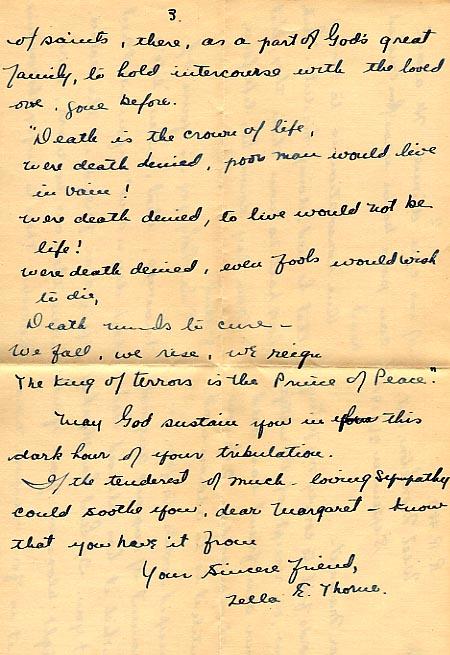 3.
of saints, there, as a part of God's great
family, to hold intercourse with the loved
one, gone before.
"Death is the crown of life,
were death denied, poor man would live
in vain!
were death denied, to live would not be
life!
were death denied, even fools would wish
to die,
Death wounds to cure -
We fall, we rise, we reign
The King of terrors is the Prince of Peace."
May God sustain you in your this
dark hour of your tribulation.
If the tenderest of much - loving sympathy
could soothe you, dear Margaret - know
that you have it from
Your sincere friend,
Zella E. Thorne.